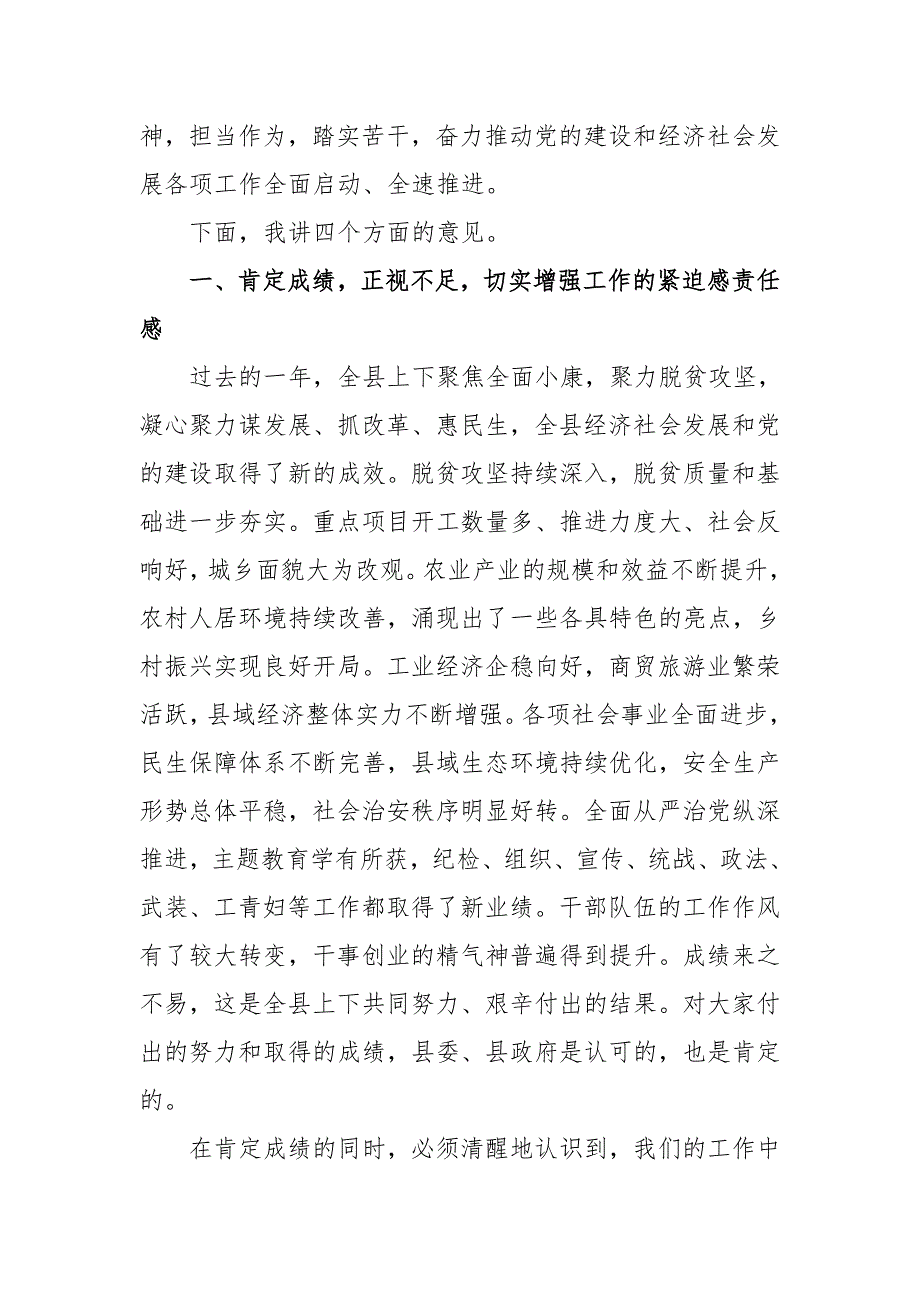 神，担当作为，踏实苦干，奋力推动党的建设和经济社会发
展各项工作全面启动、全速推进。
下面，我讲四个方面的意见。
一、肯定成绩，正视不足，切实增强工作的紧迫感责任
感
过去的一年，全县上下聚焦全面小康，聚力脱贫攻坚，
凝心聚力谋发展、抓改革、惠民生，全县经济社会发展和党
的建设取得了新的成效。脱贫攻坚持续深入，脱贫质量和基
础进一步夯实。重点项目开工数量多、推进力度大、社会反
响好，城乡面貌大为改观。农业产业的规模和效益不断提升，
农村人居环境持续改善，涌现出了一些各具特色的亮点，乡
村振兴实现良好开局。工业经济企稳向好，商贸旅游业繁荣
活跃，县域经济整体实力不断增强。各项社会事业全面进步，
民生保障体系不断完善，县域生态环境持续优化，安全生产
形势总体平稳，社会治安秩序明显好转。全面从严治党纵深
推进，主题教育学有所获，纪检、组织、宣传、统战、政法、
武装、工青妇等工作都取得了新业绩。干部队伍的工作作风
有了较大转变，干事创业的精气神普遍得到提升。成绩来之
不易，这是全县上下共同努力、艰辛付出的结果。对大家付
出的努力和取得的成绩，县委、县政府是认可的，也是肯定
的。
在肯定成绩的同时，必须清醒地认识到，我们的工作中